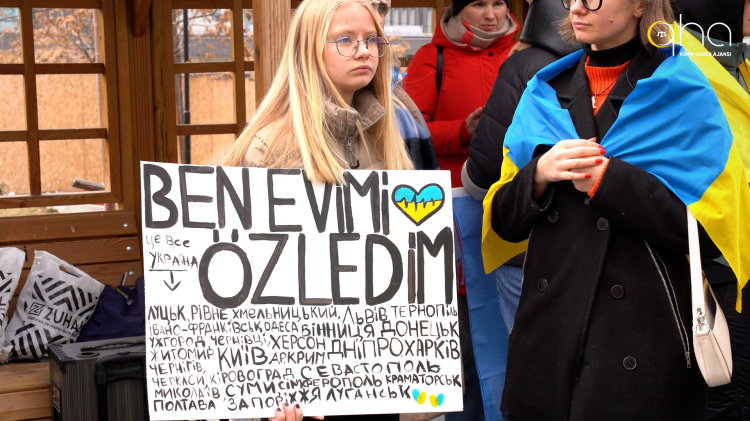 aha
KIRIM HABER AJANSI
BEN EVIMI
ÖZLEDIM
ЦЕ ВСЕ
УКРАЇНА
ЛУЦЬК, РІВНЕ ХМЕЛЬНИЦЬКИЙ, ЛЬВІВ ТЕРНОПІЛЬ
ІВАНО-ФРАНКІВСЬК, ОДЕСА ВІННИЦЯ ДОНЕЦЬК
УЖГОРОД, ЧЕРНІВЦІ ХЕРСОН ДНІПРО ХАРКІВ
ЖИТОМИР КИЇВ АР КРИМ
ЧЕРНІГІВ,
ЧЕРКАСИ, КІРОВОГРАД СЕВАСТОПОЛЬ
МИКОЛАЇВ СУМИ СІМФЕРОПОЛЬ КРАМАТОРСЬК
ПОЛТАВА ЗАПОРІЖЖЯ ЛУГАНСЬК
ZUHA